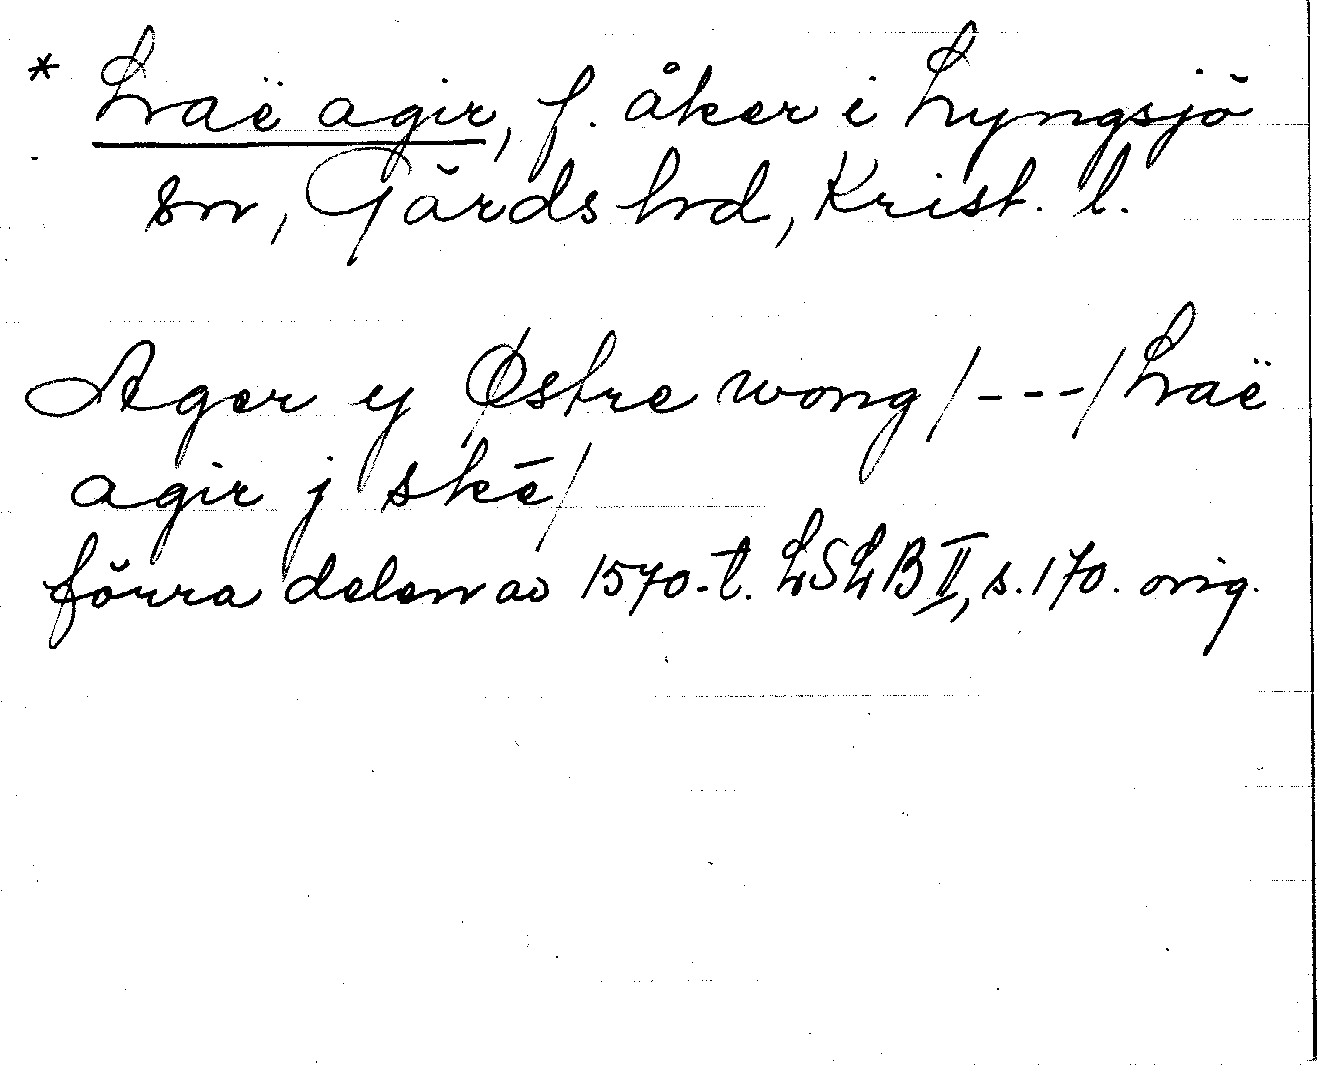 * Laë agir, f. åker i Lyngsjö
sn, Gärds hd, Krist. l.
Ager y Østre wong /---/ Laë
agir j skē/
förra delen av 1570-t. LSLB II, s. 170. orig.